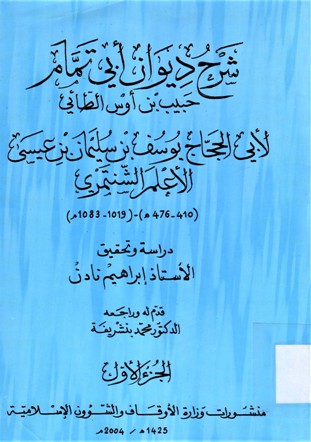 شرح ديوان أبي تمام
حبيب بن أوس الطائي
لأبي الحجاج يوسف بن سليمان بن عيسى
الأعلم الشنتمري
(410-476 هـ)-(1019-1083 م)
دراسة وتحقيق
الأستاذ إبراهيم نادن
قدم له وراجعه
الدكتور محمد بنشريفة
الجزء الأول
منشورات وزارة الأوقاف والشؤون الإسلامية
1425هـ / 2004م